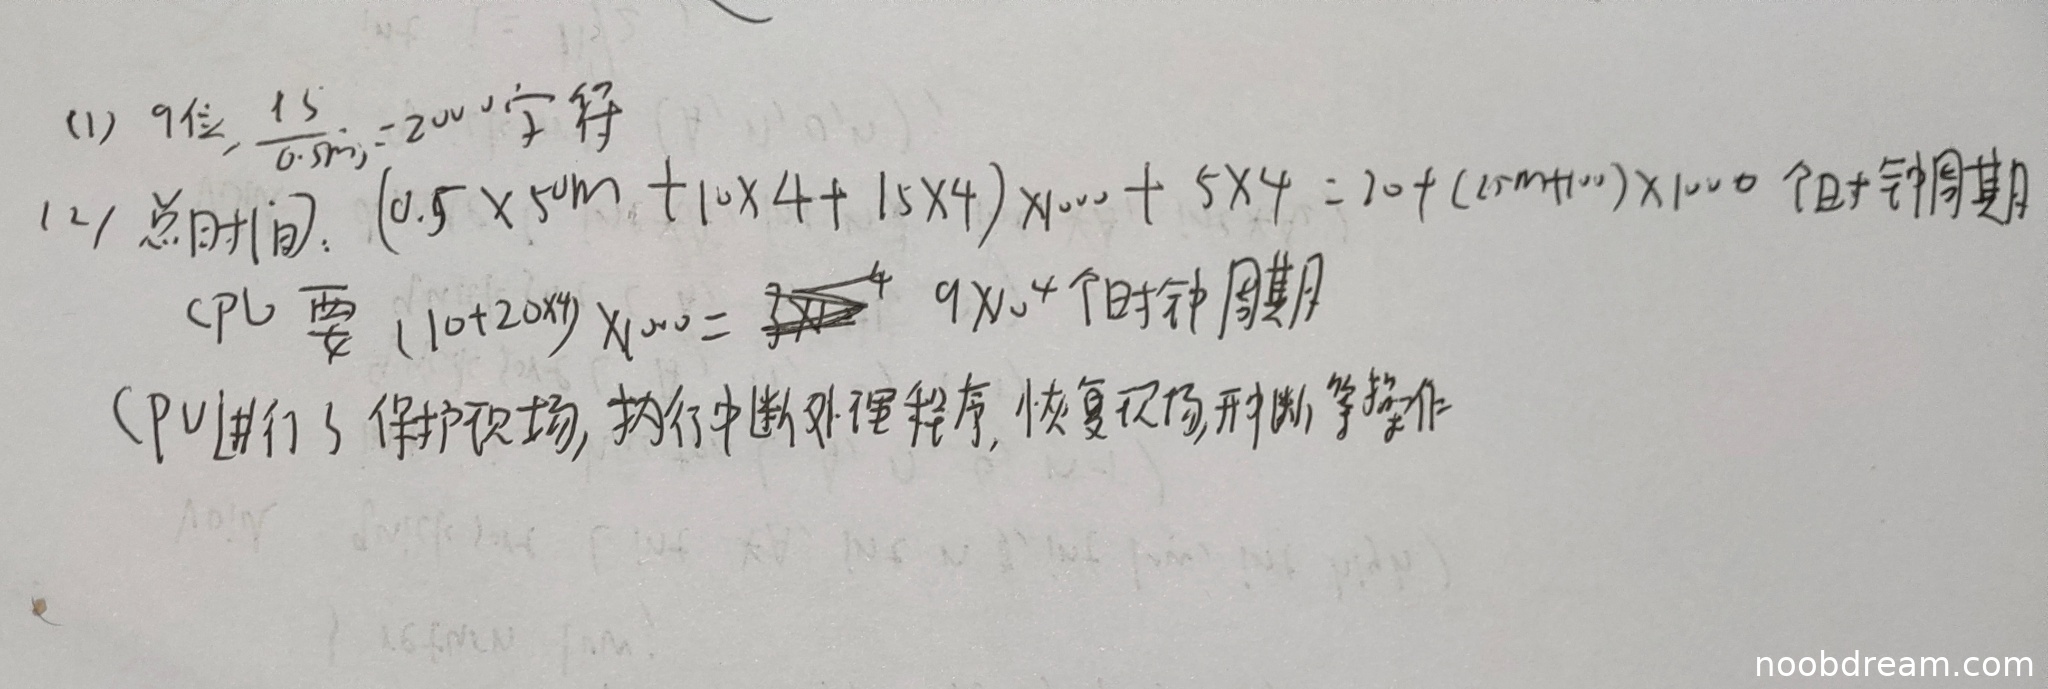 (1) 9位, 1s/0.5ms=2000字符
(2) 总时间: (0.5×50M+10×4+15×4)×1000+5×4=20+(25M+100)×1000 个时钟周期
CPU 要 (10+20×4)×1000= 9×10^4 个时钟周期
CPU进行了保护现场,执行中断处理程序,恢复现场,开中断等操作
noobdream.com